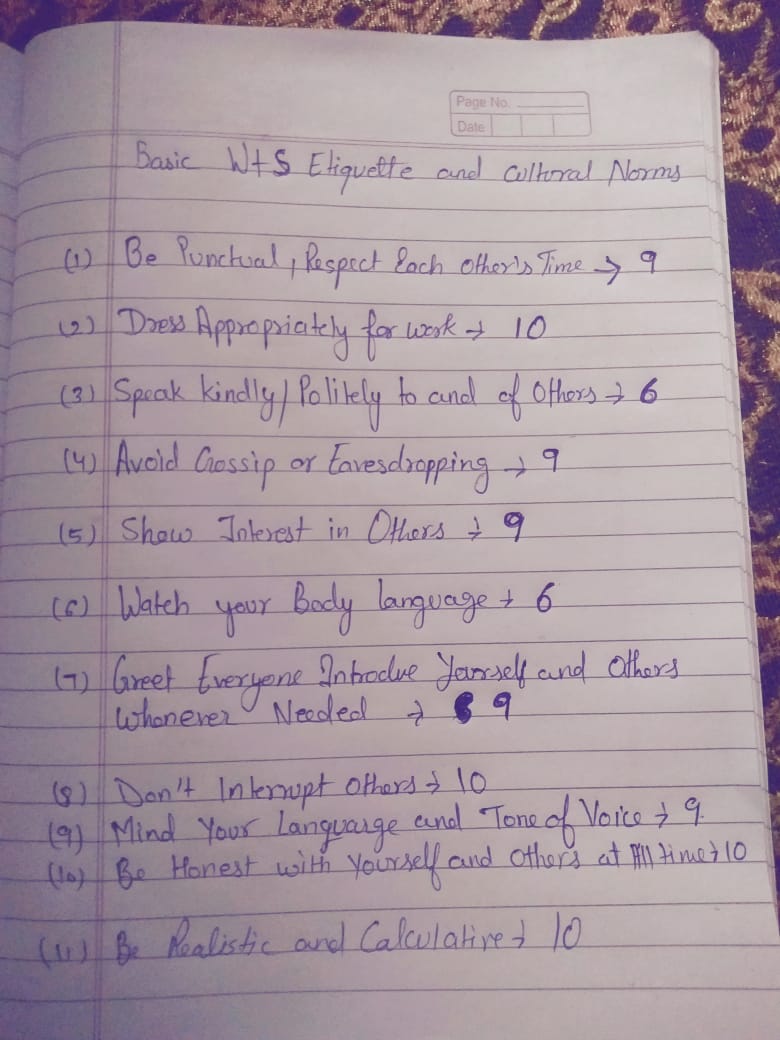 Page No.
Date
Basic W+S Etiquette and Cultural Norms
(1) Be Punctual, Respect Each Other's Time → 9
(2) Dress Appropriately for work → 10
(3) Speak kindly/Politely to and of Others → 6
(4) Avoid Gossip or Eavesdropping → 9
(5) Show Interest in Others → 9
(6) Watch your Body language → 6
(7) Greet Everyone Introdue Yourself and Others
Whenever Needed → 9
(8) Don't Interrupt Others → 10
(9) Mind Your Languarge and Tone of Voice → 9.
(10) Be Honest with Yourself and Others at All time → 10
(11) Be Realistic and Calculative → 10